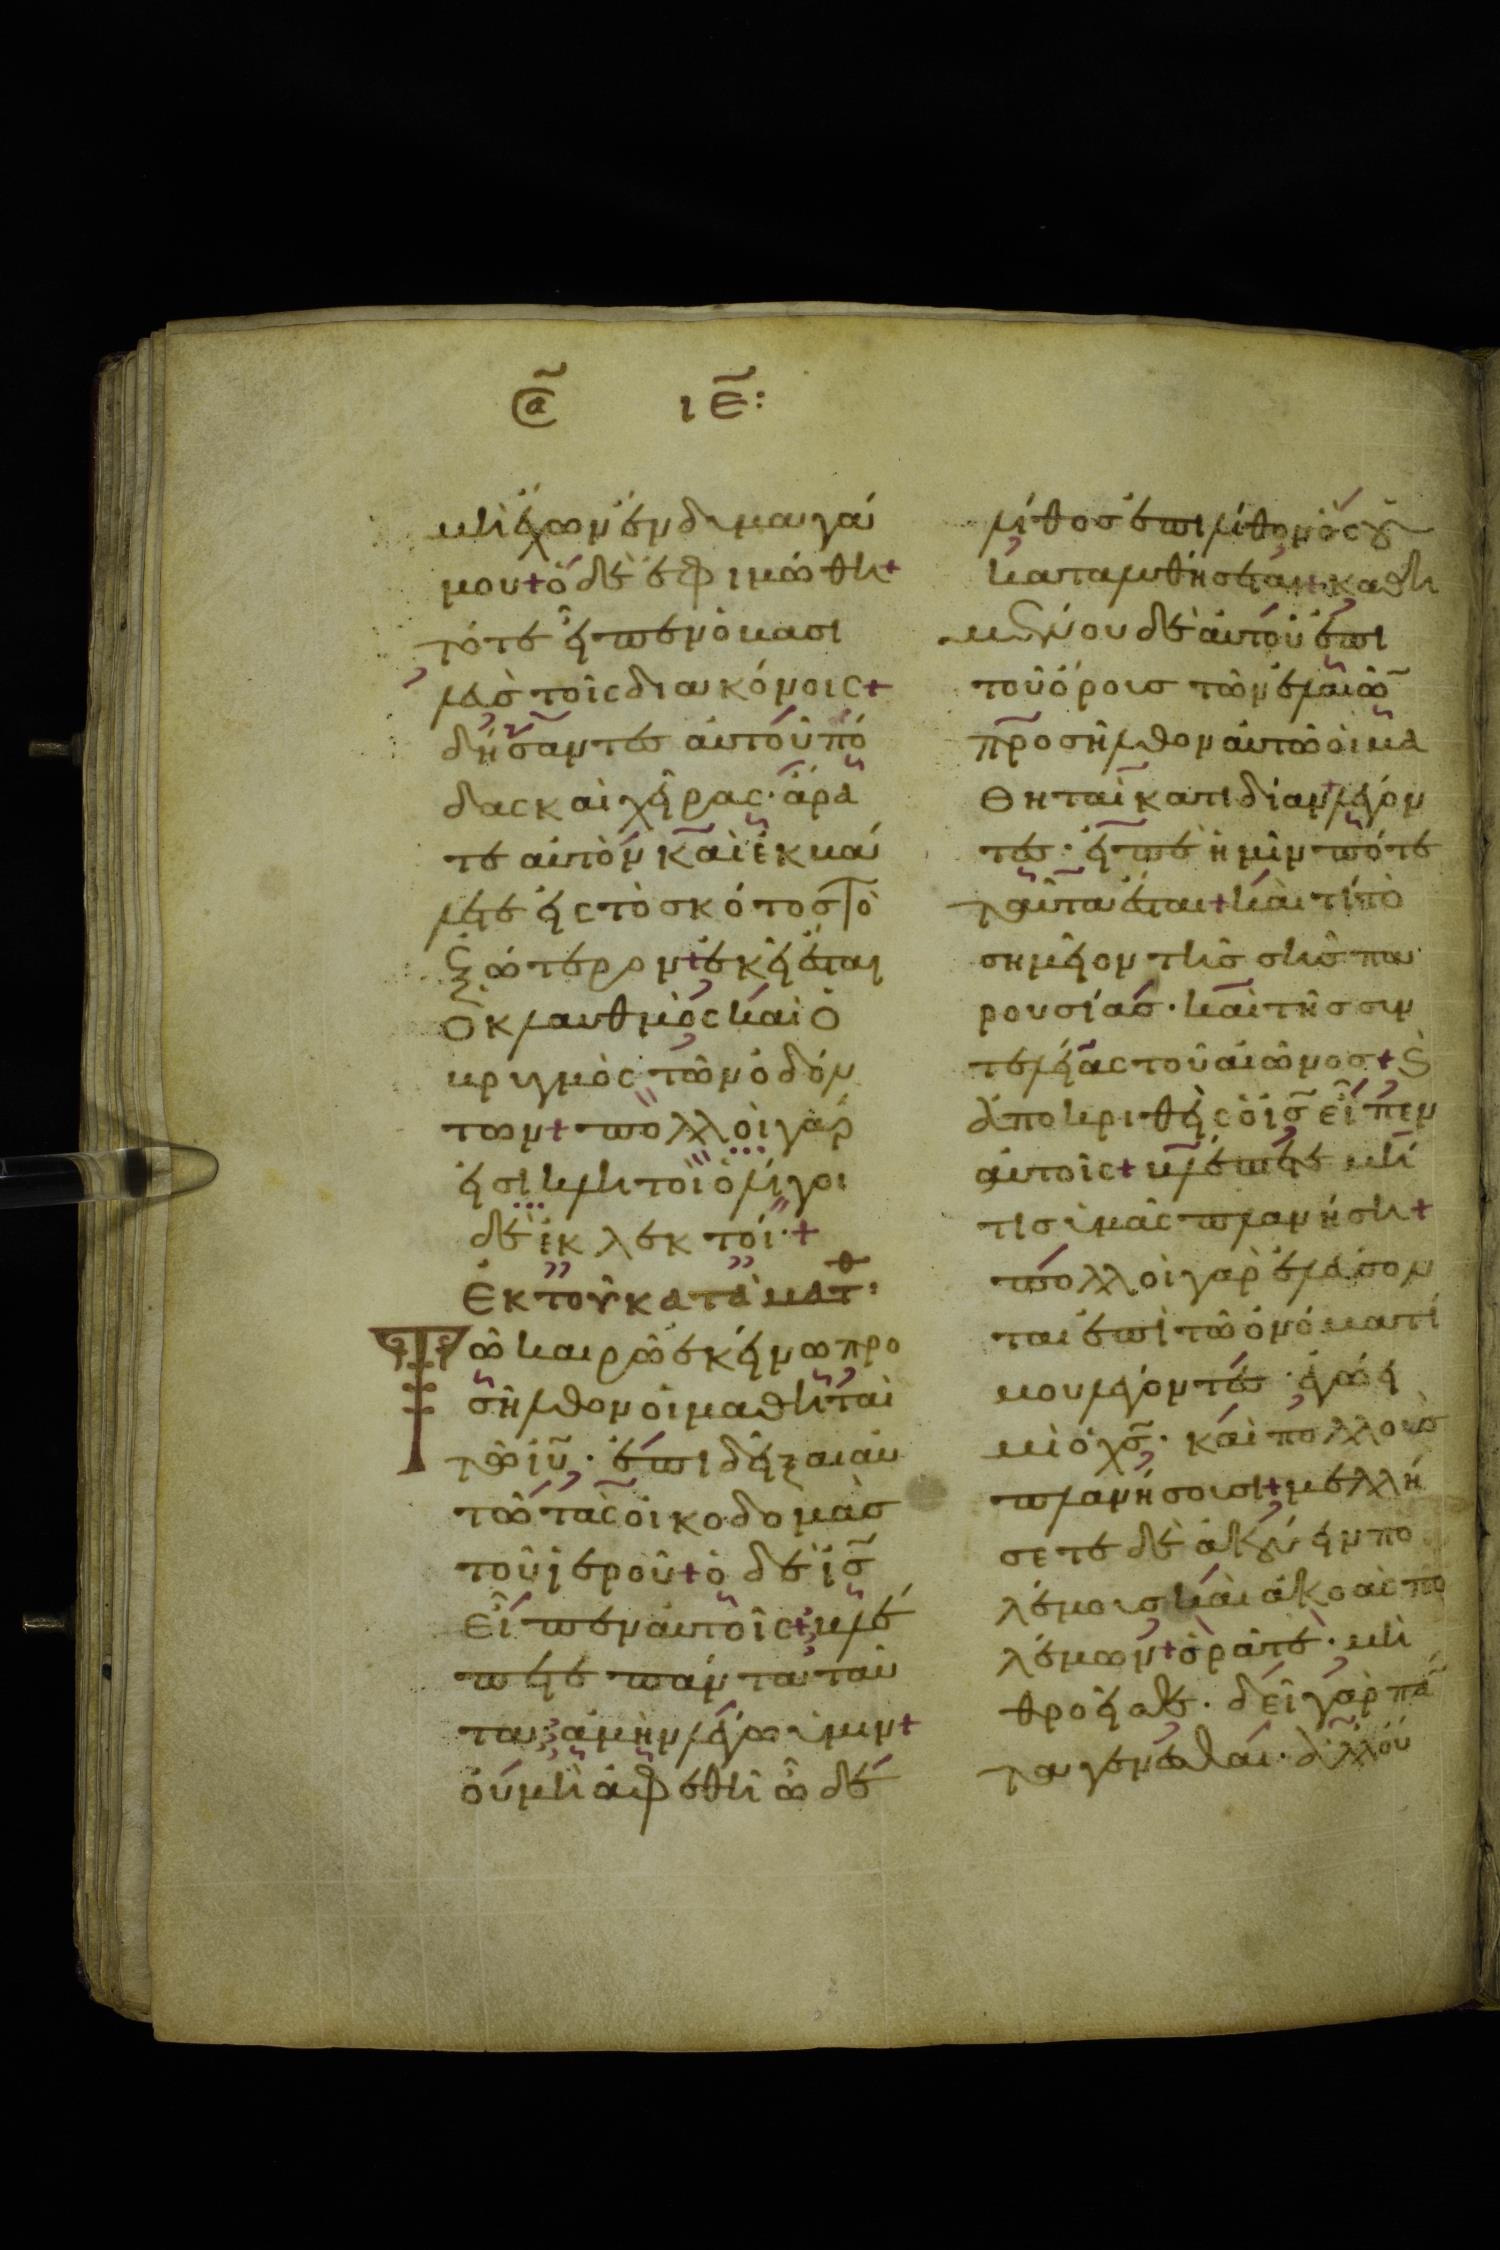 Σα ιε:
μὴ ἔχων ἔνδυμα γά
μου + ὁ δὲ ἐφιμώθη +
τότε εἶπεν ὁ βασι
λεὺς τοῖς διακόνοις +
δήσαντες αὐτοῦ πό
δας καὶ χεῖρας · ἄρα
τε αὐτὸν καὶ ἐκβά
λετε εἰς τὸ σκότος τὸ
ἐξώτερον + ἐκεῖ ἔσται
ὁ κλαυθμὸς καὶ ὁ
βρυγμὸς τῶν ὀδόν
των + πολλοὶ γάρ
εἰσι κλητοὶ ὀλίγοι
δὲ ἐκλεκτοί · +
Ἐκ τοῦ κατὰ Ματθ:
Τῶ καιρῶ ἐκείνω προ
σῆλθον οἱ μαθηταὶ
τῶ ιυ · ἐπιδεῖξαι αὐ
τῶ τὰς οἰκοδομὰς
τοῦ ἱεροῦ + ὁ δὲ ις
εἶπεν αὐτοῖς + βλέ
πετε πάντα ταῦ
τα ; ἀμὴν λέγω ὑμῖν +
οὐ μὴ ἀφεθῆ ὧδε
λίθος ἐπὶ λίθον ὃς οὐ
καταλυθήσεται + καθη
μένου δὲ αὐτοῦ ἐπὶ
τοῦ ὄρους τῶν ἐλαιῶ
προσῆλθον αὐτῶ οἱ μα
θηταὶ κατιδίαν λέγον
τες · εἰπὲ ἡμῖν πότε
ταῦτα ἔσται + καὶ τί τὸ
σημεῖον τῆς σῆς πα
ρουσίας · καὶ τῆς συν
τελείας τοῦ αἰῶνος + Καὶ
ἀποκριθεὶς ὁ ις εἶπεν
αὐτοῖς + βλέπετε μή
τις ὑμᾶς πλανήση +
πολλοὶ γὰρ ἐλεύσον
ται ἐπὶ τῶ ὀνόματί
μου λέγοντες · ἐγώ εἰ
μι ὁ χς · καὶ πολλοὺς
πλανήσουσι + μελλή
σετε δὲ ἀκούειν πο
λέμους καὶ ἀκοὰς πο
λέμων + ὁρᾶτε · μὴ
θροεῖσθε · δεῖ γὰρ πά
τα γενέσθαι · ἀλλ' οὔ